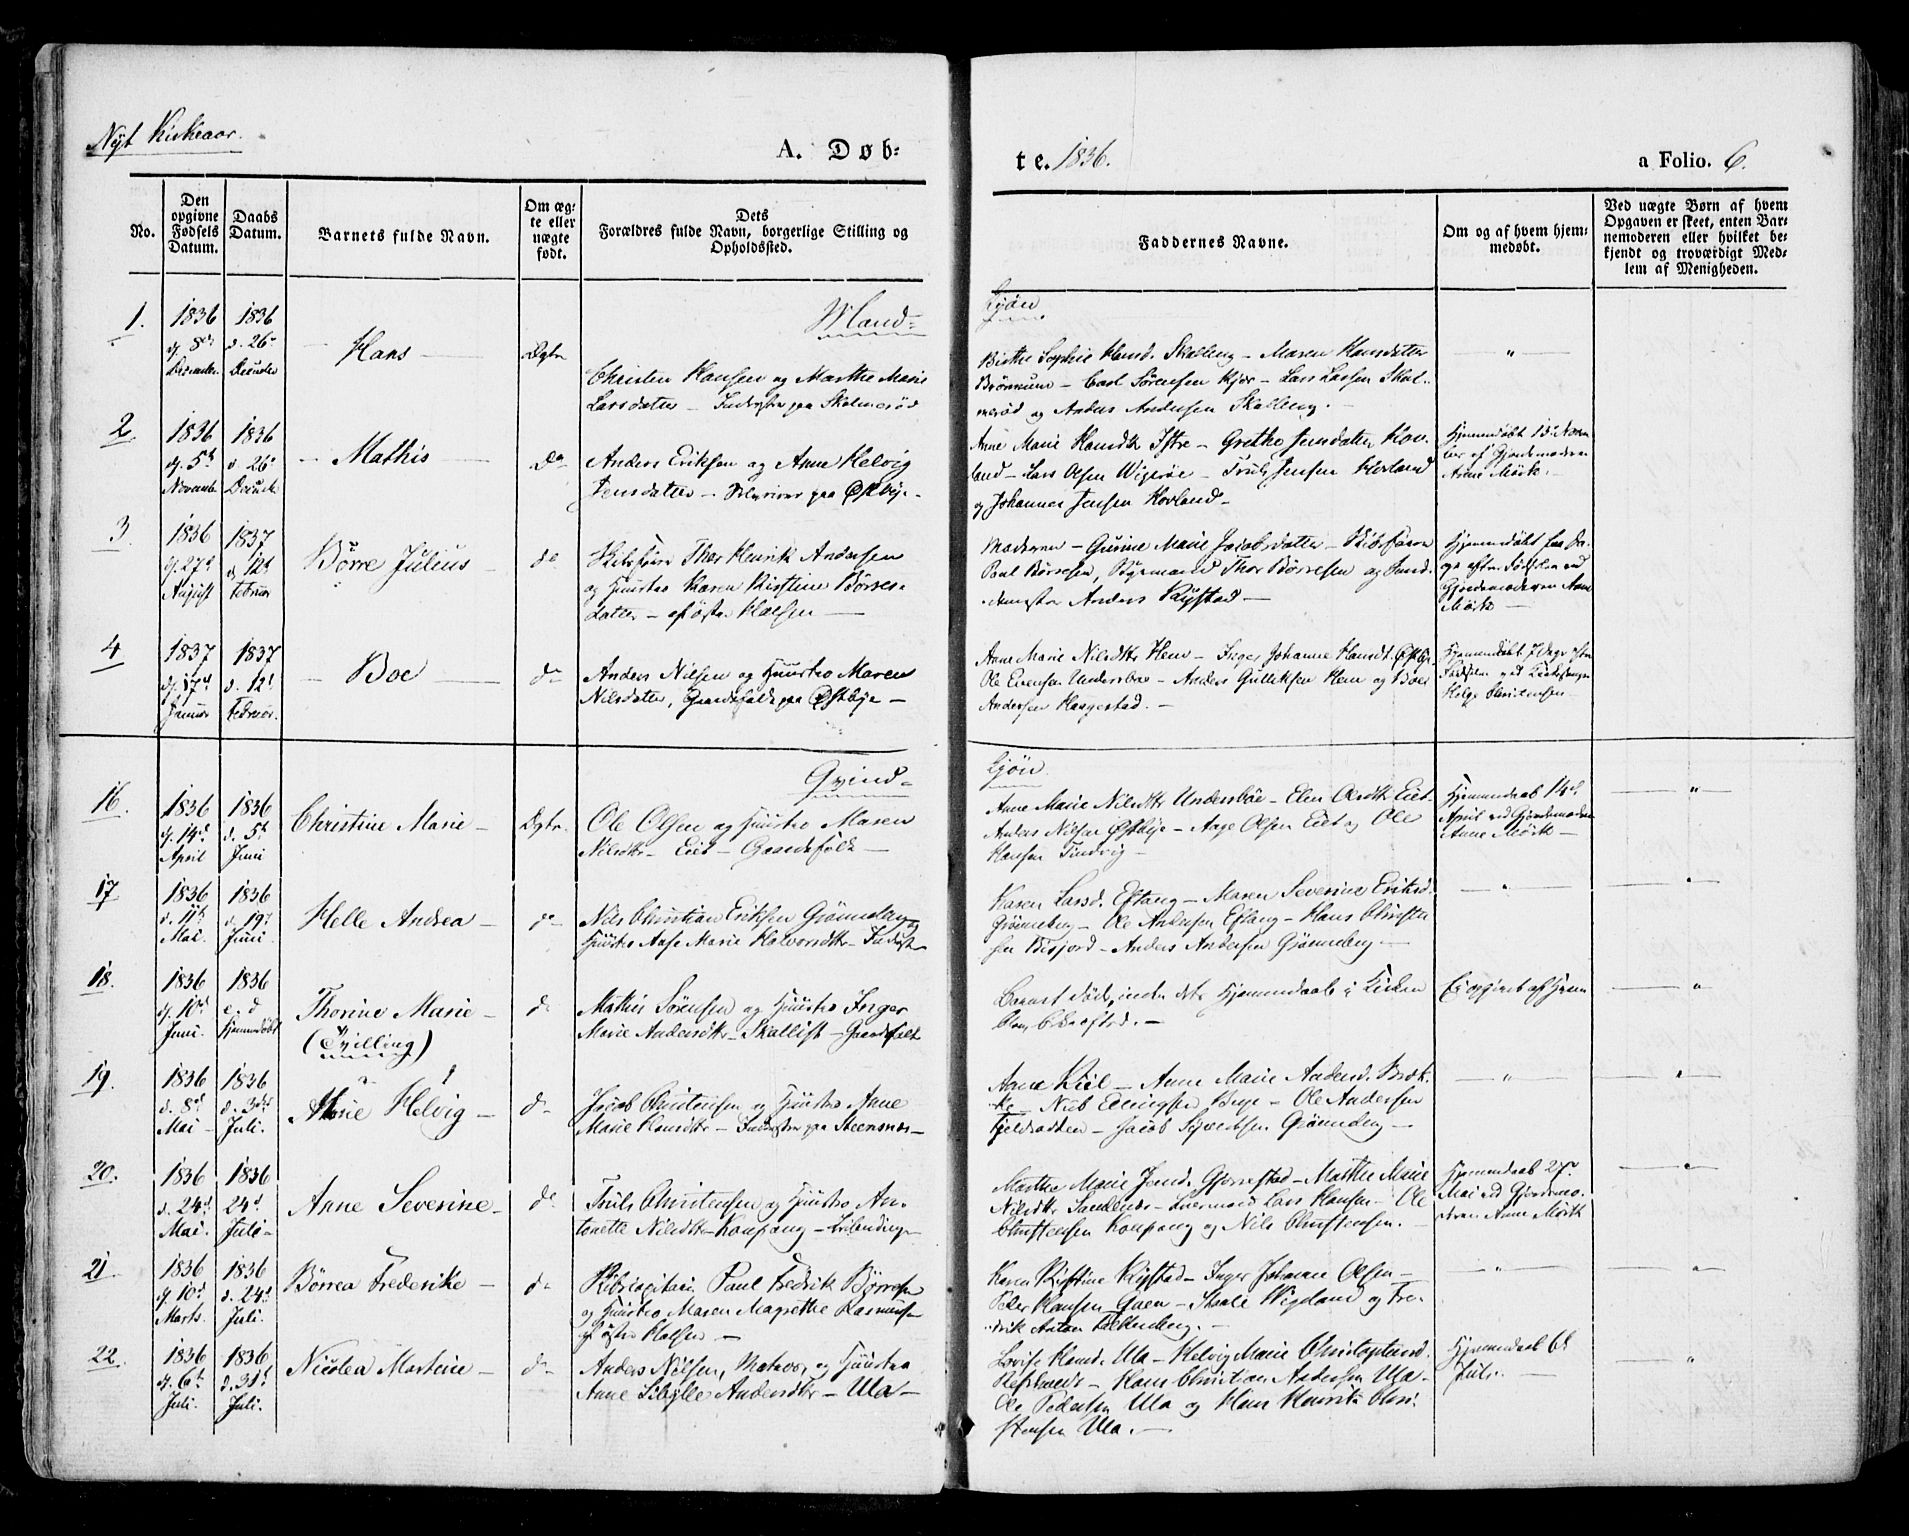 Nyt Kirkeaar.
A. Døb-
te. 1836.
a Folio. 6.
No.
Den
opgivne
Fødsels
Datum.
Daabs
Datum.
Barnets fulde Navn.
Om æg-
te eller
uægte
født.
Dets
Forældres fulde Navn, borgerlige Stilling og
Opholdssted.
Faddernes Navne.
Om og af hvem hjem-
medøbt.
Ved uægte Børn af hvem
Opgaven er skeet, enten Bar-
nemoderen eller hvilket be-
kjendt og troværdigt Med-
lem af Menigheden.
Mand-
Kjøn
1.
1836
d. 8de
December
1836
d. 26
December
Hans
Ægte
Christen Hansen og Marthe Marie
Larsdatter - Inderster paa Skalmerød
Birthe Sophie Hansd. Skalleng - Maren Hansdatter
Brønnum - Carl Sørensen Kjær - Lars Larsen Skal-
merød og Anders Andersen Skalleng.
2
1836
d. 5t
Novembr
1836
d. 26
Decembr
Mathis
do
Anders Eriksen og Anne Helvig
Jensdatter - paa Østbye -
Anne Marie Hansdtr Istre - Grethe Jensdatter Hov-
land - Lars Olsen Wigerøe - Truls Jensen Hovland
og Johannes Jensen Hovland -
Hjemmedøbt 15 Novem-
ber af Gjordemoderen
Anne Mørk. -
3
1836
d. 27d
August
1837
d. 12t
Februar
Børre Julius
do
Skibsfører Thor Henrik Andersen
og Hustro Karen Kirstine Børres-
datter - af østre Halsen -
Moderen - Gurine Marie Jacobsdatter - Skibsfører
Paul Børresen, Bygmand Thor Børresen og
Anders Rystad -
Hjemmedøbt
efter Fødselen ved
Gjordemoderen Anne
Mørk -
4
1837
d. 17d
Januar
1837
d. 12t
Februar.
Boe
do
Anders Nilsen og Hustro Maren
Nilsdatter, Gaardsfolk paa Østbye -
Anne Marie Nilsdtr Hem - Inger Johanne Hansdt. Østbye
Ole Evensen Undersboe - Anders Gulliksen Hem og Boe
Andersen Haugestad. -
Hjemmedøbt 7 Dage efter
Fødselen ved Kirkesanger
Helge Christensen -
Qvind-
Kjøn.
16.
1836
d. 14d
April
1836
d. 5t
Juni
Christine Marie -
Ægte.
Ole Olsen og Hustro Maren
Nilsdtr - Eiet - Gaardsfolk -
Anne Marie Nilsdtr Undersbøe - Elen Olsdtr Eiet-
Anders Nilsen Østbye - Aage Olsen Eiet og Ole
Hansen Tindvig -
Hjemmedaab 14d
April ved Gjordemoderen
Anne Mørk -
17
1836
d. 11t
Mai.
1836
d. 19
Juni
Helle Andrea -
do
Nils Christian Eriksen Grønneberg
Hustro Aase Marie Halvorsdtr - Inderst
Karen Larsd. Eftang - Maren Severine Eriksd.
Grønneberg - Ole Andersen Eftang - Hans Christen
sen Bisjord - Anders Andersen Grønneberg -
18.
1836
d. 10d
Juni.
1836
Hjemmedøbt
Thorine Marie -
(Tvilling)
do
Mathis Sørensen og Hustro Inger
Marie Andersdtr - Skallist - Gaardsfolk
Barnet døde, inden dets Hjemmedaab i Kirken
blev bekræftet. -
Ei opgivet af hvem
19.
1836
d. 8d
Mai -
1836
d. 3die
Juli.
Marie Helvig -
do
Jacob Christensen og Hustro Anne
Marie Hansdtr - Inderster paa Steensnæs -
Anne Kiel - Anne Marie Andersd. Bræk-
ke - Nils Ellingsen Berge - Ole Andersen
Fjeldradden - Jacob Sivertsen Grønneberg -
20.
1836
d. 24d
Mai.
1836
24d
Juli -
Anne Severine -
do
Truls Christensen og Hustro An-
tonette Nilsdtr - Kaupang -
Marthe Marie Jensd. Gjerrestad - Marthe Marie
Nilsdtr Sandene - Lars Hansen - Ole
Christensen Kaupang og Nils Christensen. -
Hjemmedaab 27d
Mai ved Gjordemo-
deren Anne Mørk
21
1836
d. 10d
Marts.
1836
d. 24d
Juli.
Børrea Frederike -
do
Skibscapitain Paul Fredrik Børresen
og Hustro Maren Magrethe Rasmusd.
af østre Halsen -
Karen Kirstine Rystad - Inger Johanne Olsen -
Peter Hansen Gaen - Staale Wigeland og Fre-
drik Anton Falkenberg. -
22
1836
d. 6t
Juli.
1836
d. 31t
Juli.
Nicolea Martine -
do
Anders Nilsen, Matros, og Hustro
Anne Sibylle Andersdtr - Ula -
Lovise Hansd. Ula - Helvig Marie Christophersd.
Refsholdt - Hans Christian Andersen Ula -
Ole Pedersen Ula og Hans Henrik Chri-
stensen Ula. -
Hjemmedaab 6t
Juli. -